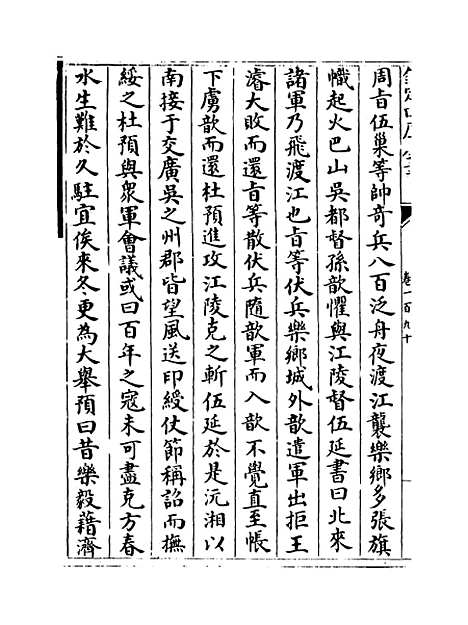 周旨伍巢等帥奇兵八百泛舟夜渡江襲樂鄉多張旗
幟起火巴山吳都督孫歆懼與江陵督伍延書曰北來
諸軍乃飛渡江也旨等伏兵樂鄉城外歆遣軍出拒王
濬大敗而還旨等散伏兵隨歆軍而入歆不覺直至帳
下虜歆而還杜預進攻江陵克之斬伍延於是沅湘以
南接于交廣吳之州郡皆望風送印綬仗節稱詔而撫
綏之杜預與衆軍會議或曰百年之寇未可盡克方春
水生難於久駐宜俟來冬更為大舉預曰昔樂毅藉濟
卷一百九十